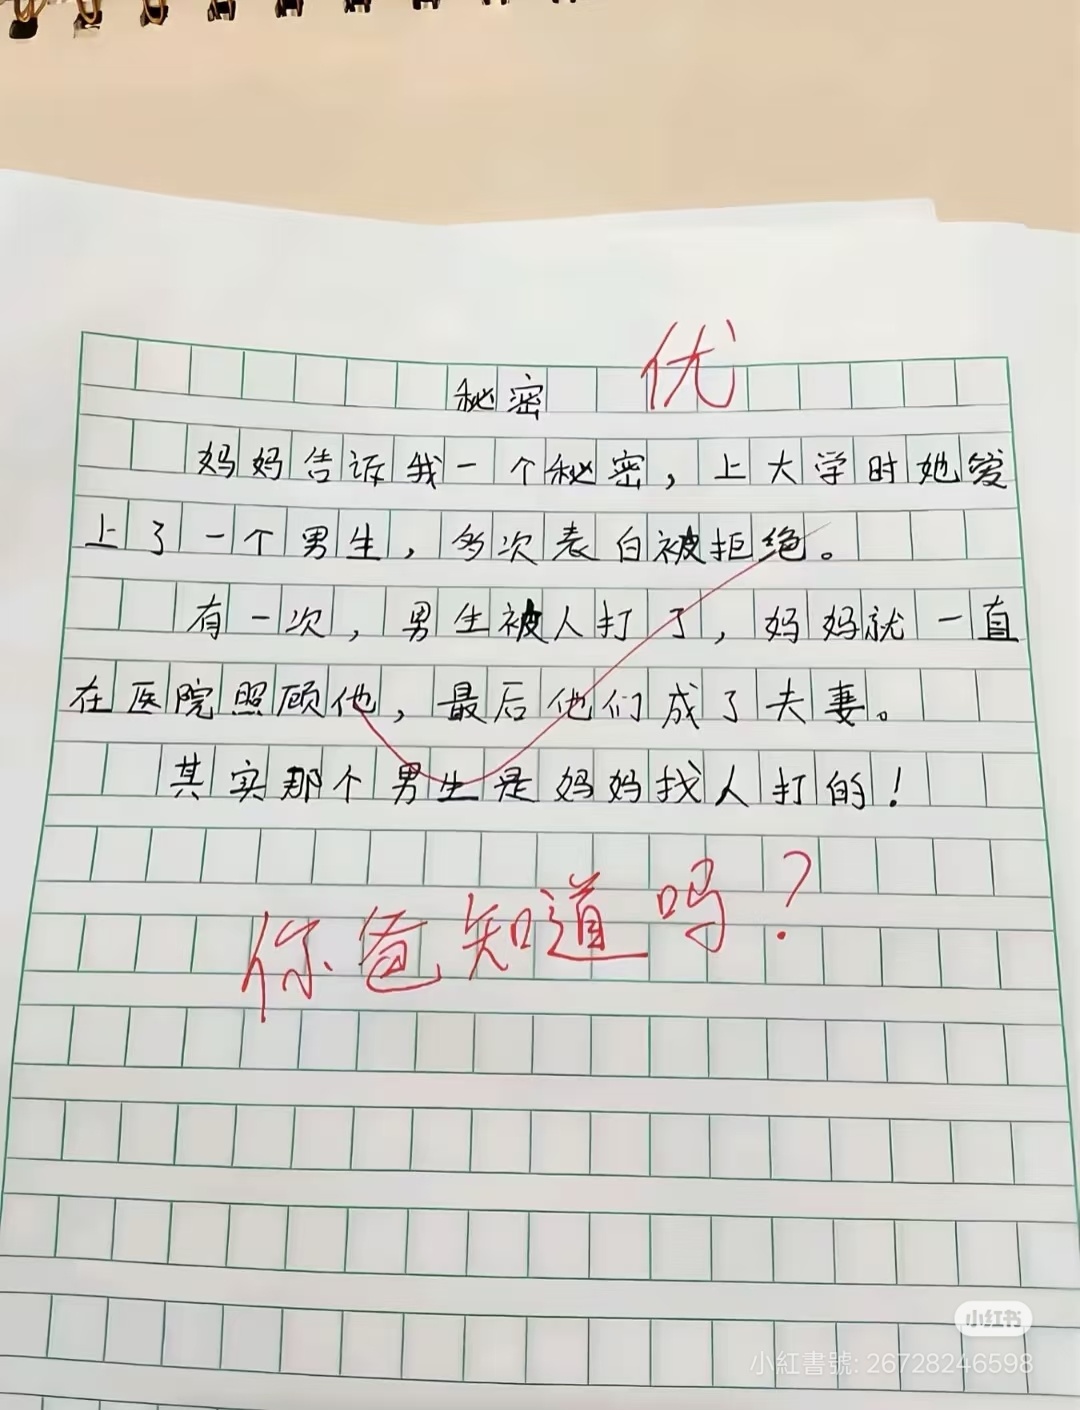 秘密
优
妈妈告诉我一个秘密，上大学时她爱
上了一个男生，多次表白被拒绝。
有一次，男生被人打了，妈妈就一直
在医院照顾他，最后他们成了夫妻。
其实那个男生是妈妈找人打的！
你爸知道吗？
小红书
小紅書號: 26728246598